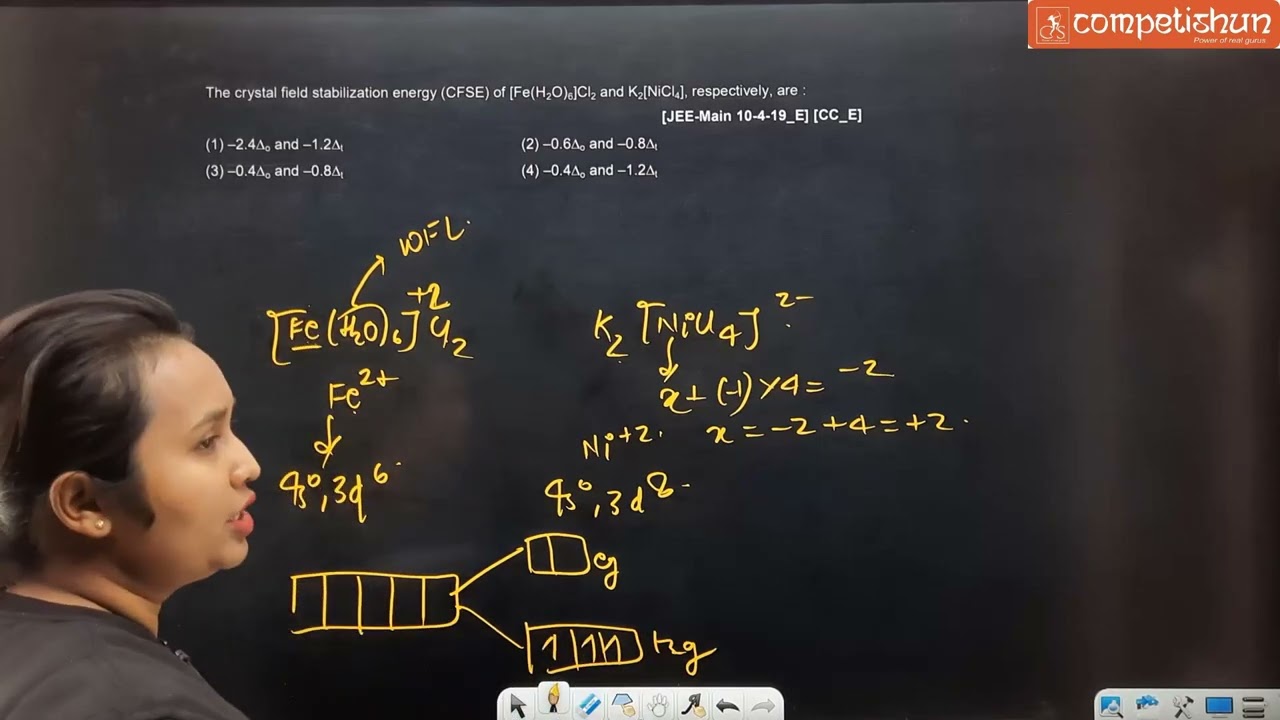 competishun
Power of real gurus
The crystal field stabilization energy (CFSE) of [Fe(H₂O)₆]Cl₂ and K₂[NiCl₄], respectively, are :
[JEE-Main 10-4-19_E] [CC_E]
(1) –2.4Δₒ and –1.2Δₜ
(2) –0.6Δₒ and –0.8Δₜ
(3) –0.4Δₒ and –0.8Δₜ
(4) –0.4Δₒ and –1.2Δₜ
WFL.
[Fe(H₂O)₆]⁺² Cl₂
K₂ [NiCl₄]²⁻
Fe²⁺
x + (-1) × 4 = -2
Ni⁺². x = -2 + 4 = +2.
4s⁰, 3d⁶
4s⁰, 3d⁸
eg
1 1 1 1
t₂g